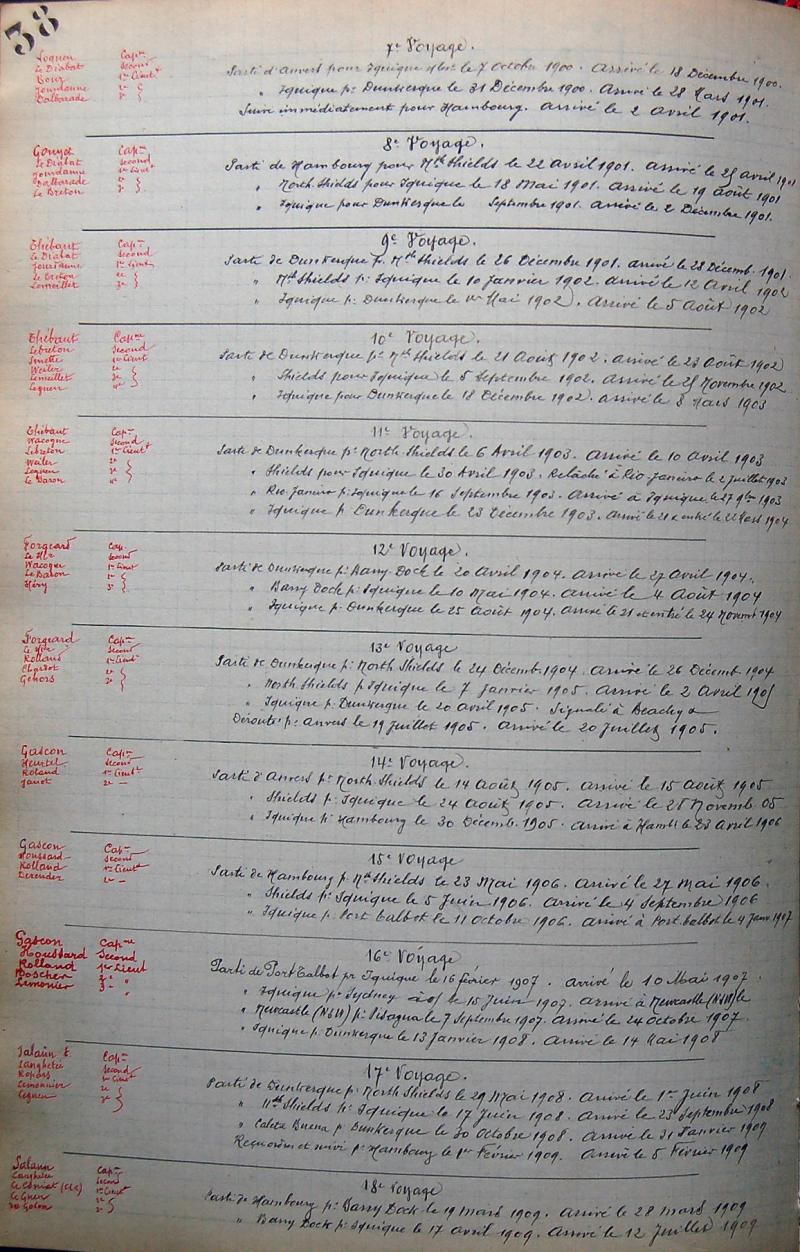 38
7e Voyage.
Capne
Le Diabat Second
Jourdanne
Dalbarade
Parti d'Anvers pour Iquique le 7 Octobre 1900. Arrivé le 18 Décembre 1900.
" Iquique pr Dunkerque le 31 Décembre 1900. Arrivé le 28 Mars 1901.
Suivi immédiatement pour Hambourg. Arrivé le 2 avril 1901.
8e Voyage.
Capne
Le Diabat Second
Jourdanne 1er Lieut
Dalbarade 2e
Le Breton 3e
Parti de Hambourg pour Nth Shields le 22 Avril 1901. Arrivé le 25 avril 1901
" North Shields pour Iquique le 18 Mai 1901. Arrivé le 19 Août 1901
" Iquique pour Dunkerque le Septembre 1901. Arrivé le 2 Décembre 1901.
9e Voyage.
Thébaut Capne
Le Diabat Second
Jourdanne 1er Lieut
Le Breton 2e
Lemeillet 3e
Parti de Dunkerque p. Nth Shields le 26 Décembre 1901. arrivé le 28 Décemb. 1901.
" Nth Shields p: Iquique le 10 Janvier 1902. Arrivé le 12 Avril 1902
" Iquique p: Dunkerque le 1er Mai 1902. Arrivé le 5 Août 1902
10e Voyage.
Thébaut Capne
Lebreton Second
1er Lieut
Weiler 2e
Lemeillet 3e
Leguen 4e
Parti de Dunkerque pr Nth Shields le 21 Août 1902. Arrivé le 23 Août 1902
" Shields pour Iquique le 5 Septembre 1902. Arrivé le 25 Novembre 1902
" Iquique pour Dunkerque le 18 Décembre 1902. Arrivé le 8 Mars 1903
11e Voyage.
Thébaut Capne
Wacogne Second
Lebreton 1er Lieut
Weiler 2e
Leguen 3e
Le Baron 4e
Parti de Dunkerque p: North Shields le 6 Avril 1903. Arrivé le 10 Avril 1903
" Shields pour Iquique le 30 Avril 1903. Relâché à Rio-Janeiro le 2 Juillet 1903
" Rio-Janeiro p: Iquique le 16 Septembre 1903. Arrivé à Iquique le 27 9bre 1903
" Iquique p: Dunkerque le 23 Décembre 1903. Arrivé le 21 & entré le 22 Mars 1904
12e Voyage.
Forgeard Cap.
Second
Wacogne 1er Lieut
Le Baron 2e
Héry 3e
Parti de Dunkerque p: Barry Dock le 20 Avril 1904. Arrivé le 27 Avril 1904.
" Barry Dock p: Iquique le 10 Mai 1904. Arrivé le 4 Août 1904
" Iquique p: Dunkerque le 25 Août 1904. Arrivé le 21 et entré le 24 Novemb 1904
13e Voyage
Forgeard Capne
Second
Rolland 1er Lieut
2e
Gehors 3e
Parti de Dunkerque p: North Shields le 24 Décemb. 1904. Arrivé le 26 Décemb 1904
" North Shields p Iquique le 7 Janvier 1905. Arrivé le 2 Avril 1905
" Iquique p: Dunkerque le 20 Avril 1905. Signalé à Beachy &
Dérouté p: Anvers le 19 Juillet 1905. Arrivé le 20 Juillet 1905.
14e Voyage.
Gascon Capne
Heurtel Second
Roland 1er Lieut
Janot 2e
Parti d'Anvers p: North Shields le 14 Août 1905. Arrivé le 15 Août 1905
" Shields p: Iquique le 24 Août 1905. Arrivé le 25 Novemb 05
" Iquique p: Hambourg le 30 Décemb. 1905. Arrivé à Hambg le 23 Avril 1906
15e Voyage
Gascon Capne
Houssard Second
Rolland 1er Lieut
2e
Parti de Hambourg p: Nth Shields le 23 Mai 1906. Arrivé le 27 Mai 1906.
" Shields p: Iquique le 5 Juin 1906. Arrivé le 4 Septembre 1906
" Iquique p: Port Talbot le 11 Octobre 1906. Arrivé à Port Talbot le 4 Janv. 1907
16e Voyage
Gascon Capne
Houssard Second
Rolland 1er Lieut
Boscher 2e "
Limonier 3e "
Parti de Port Talbot pr Iquique le 16 Février 1907. Arrivé le 10 Mai 1907.
" Iquique pr Sydney le 15 Juin 1907. Arrivé à Newcastle (NSW) le
" Newcastle (NSW) p: Pisagua le 7 Septembre 1907. Arrivé le 24 Octobre 1907.
" Iquique p: Dunkerque le 13 Janvier 1908. Arrivé le 14 Mai 1908
17e Voyage.
Salaün Capne
Second
Ropars 1er Lieut
Lemonnier 2e
Leguen 3e
Parti de Dunkerque p: North Shields le 29 Mai 1908. Arrivé le 1er Juin 1908
" Nth Shields p: Iquique le 17 Juin 1908. Arrivé le 23 Septembre 1908
" Caleta Buena p: Dunkerque le 30 Octobre 1908. Arrivé le 31 Janvier 1909
Remorqué et suivi p: Hambourg le 1er Février 1909. Arrivé le 5 Février 1909
18e Voyage
Salaun Capne
Second
1er Lieut
Le Guen 2e
3e
Parti de Hambourg p: Barry Dock le 19 mars 1909. Arrivé le 28 mars 1909
" Barry Dock p: Iquique le 17 avril 1909. Arrivé le 12 Juillet 1909